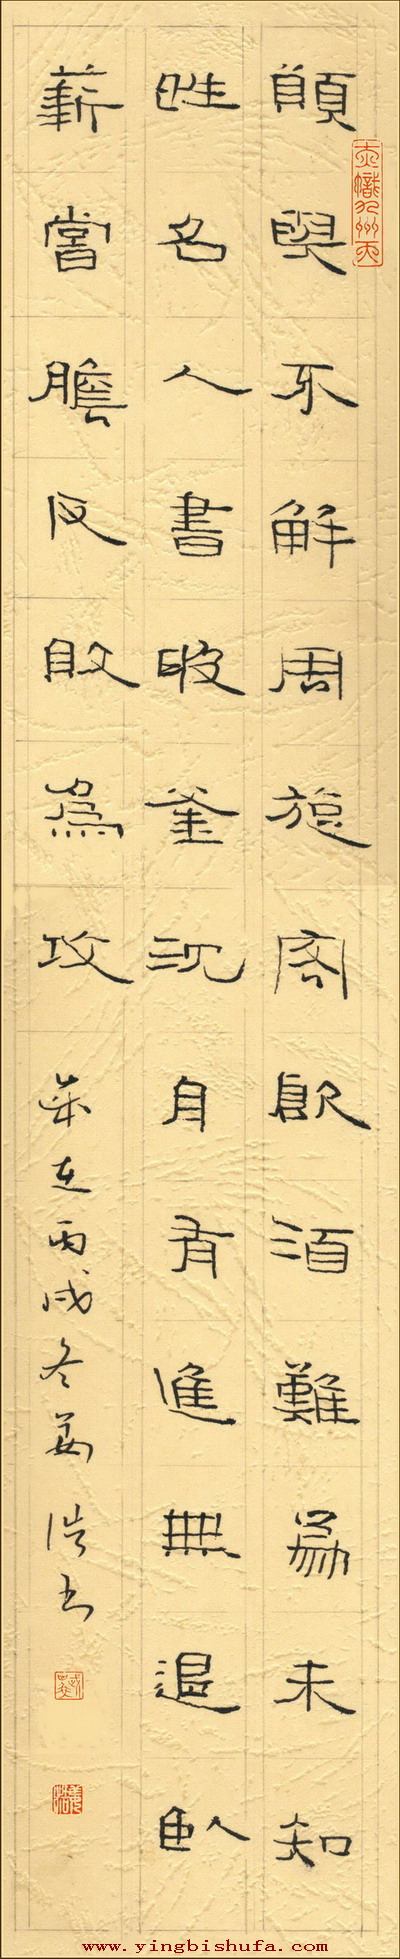 願與不解周旋客飲酒難為未知
姓名人書破釜沈舟有進無退臥
薪嘗膽反敗為攻
歲在丙戌冬姜浩書
www.yingbishufa.com